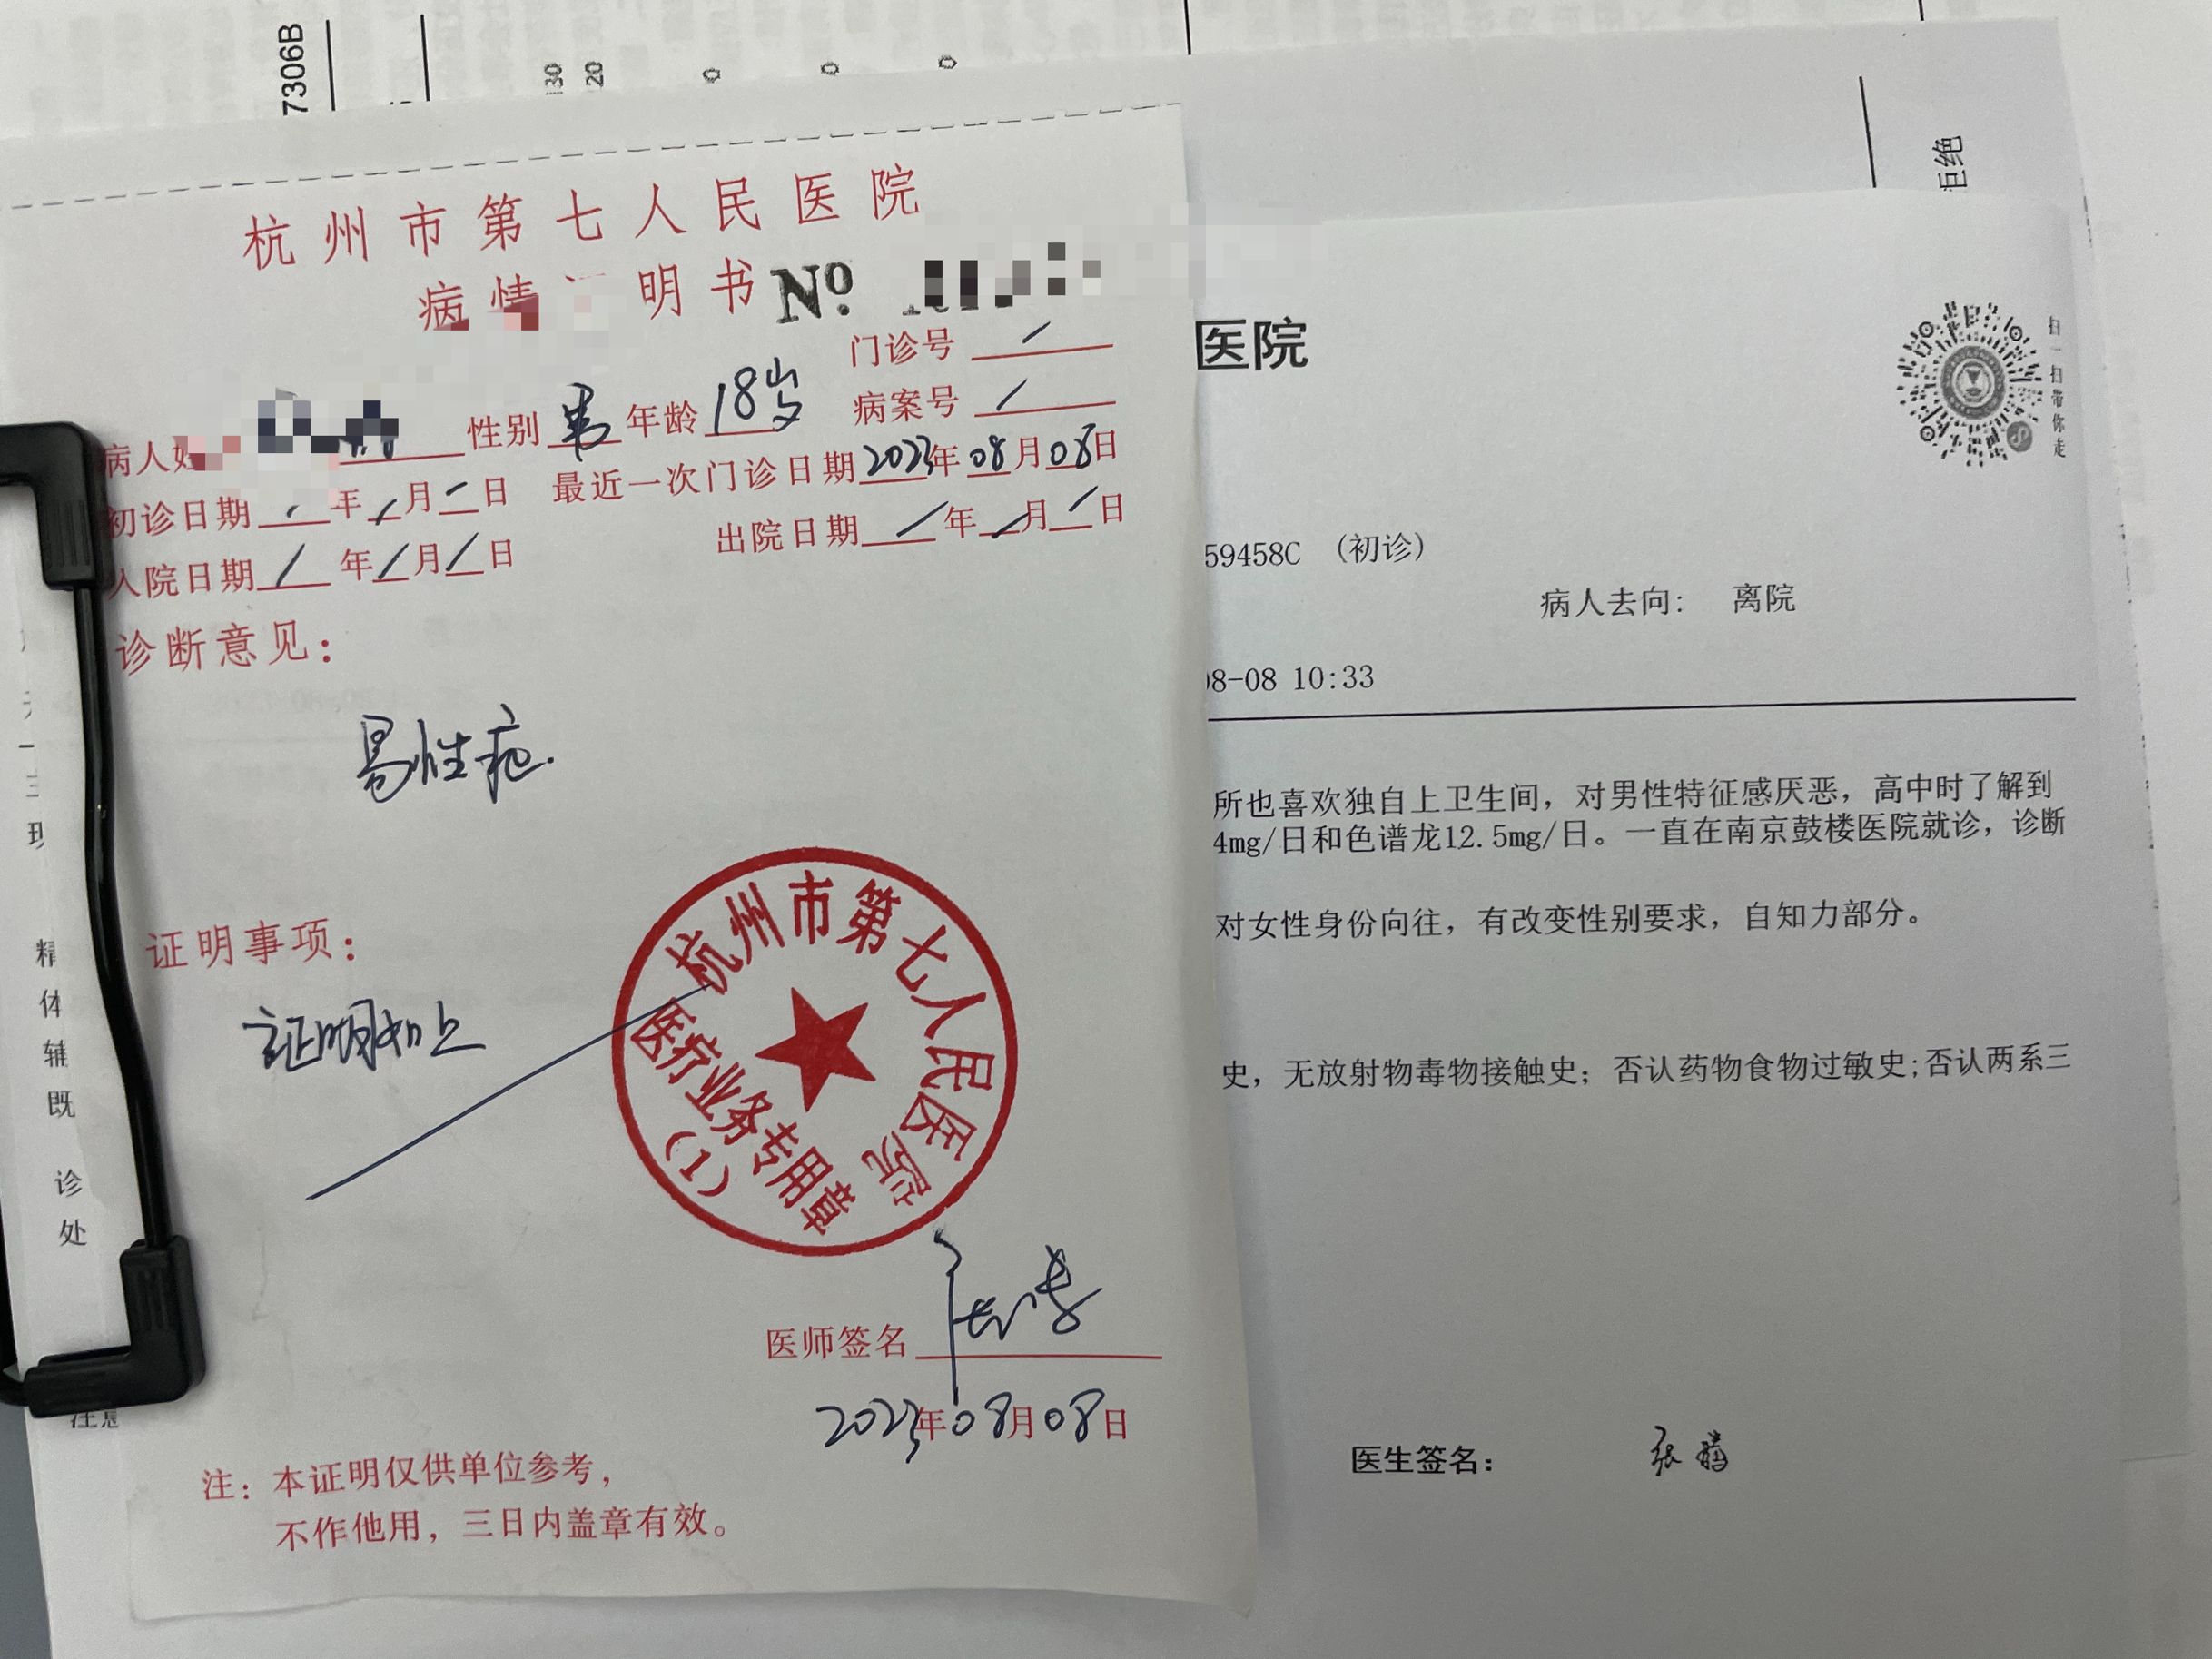 7306B
30
20
0
0
0
拒绝
杭州市第七人民医院
病情 明书 №
门诊号 /
性别 男 年龄 18岁 病案号 /
初诊日期 / 年 / 月 / 日 最近一次门诊日期 2023年08月08日
入院日期 / 年 / 月 / 日 出院日期 / 年 / 月 / 日
诊断意见：
易性症.
证明事项：
证明如上
杭州市第七人民医院
医疗业务专用章
(1)
医师签名
2023年08月08日
注：本证明仅供单位参考，
不作他用，三日内盖章有效。
体
辅
既
诊
处
医院
扫一扫带你走
59458C （初诊）
病人去向： 离院
08-08 10:33
所也喜欢独自上卫生间，对男性特征感厌恶，高中时了解到
4mg/日和色谱龙12.5mg/日。一直在南京鼓楼医院就诊，诊断
对女性身份向往，有改变性别要求，自知力部分。
史，无放射物毒物接触史；否认药物食物过敏史;否认两系三
医生签名： 张腾